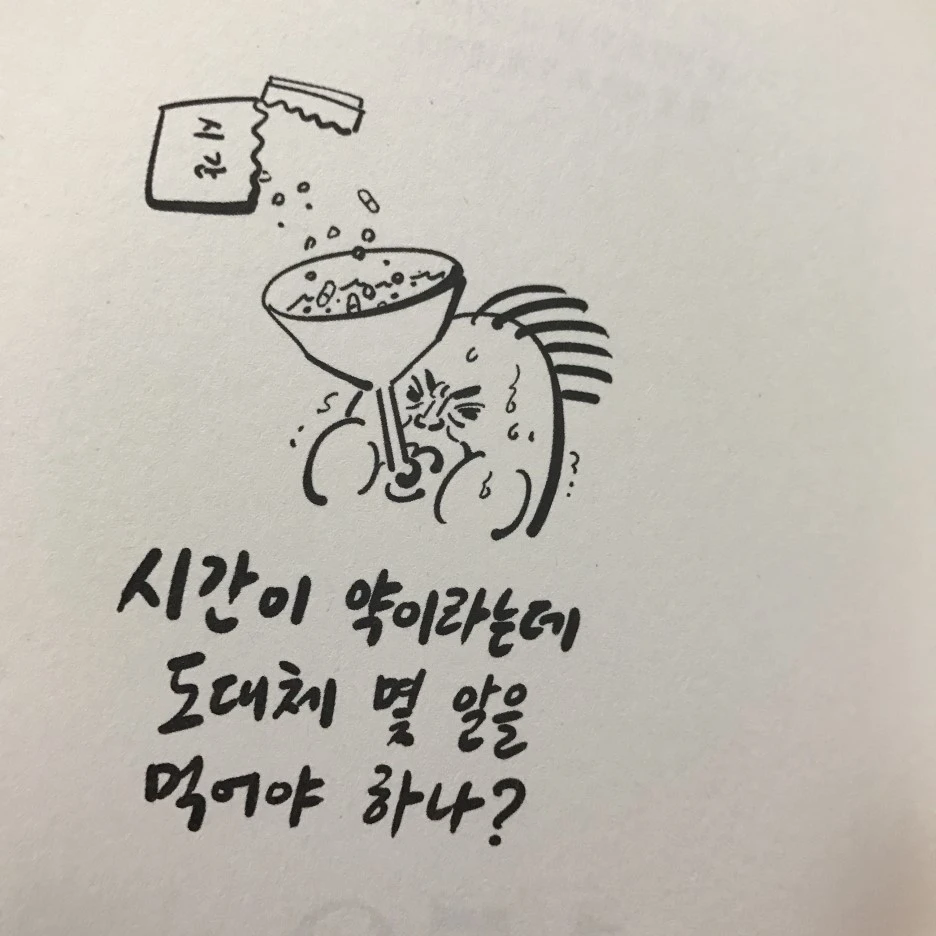 시간
시간이 약이라는데
도대체 몇 알을
먹어야 하나?